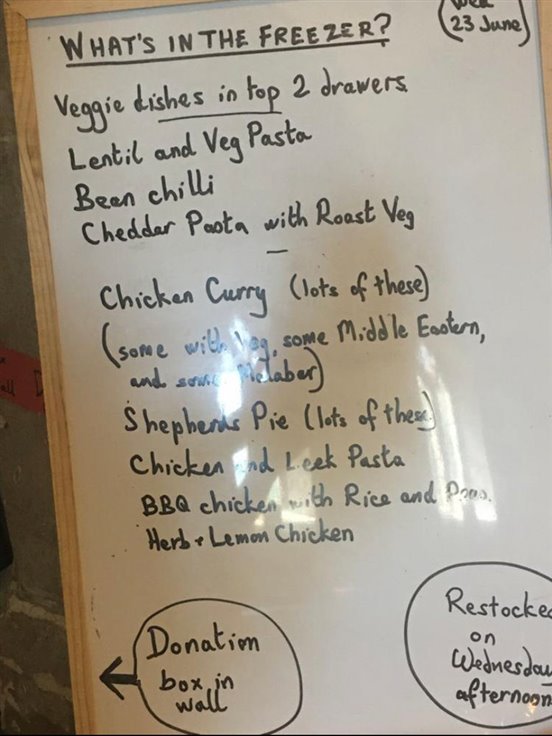 WHAT'S IN THE FREEZER?
Wed
23 June
Veggie dishes in top 2 drawers
Lentil and Veg Pasta
Bean chilli
Cheddar Pasta with Roast Veg
Chicken Curry (lots of these)
(some with Veg, some Middle Eastern,
and some Malabar)
Shepherds Pie (lots of these)
Chicken and Leek Pasta
BBQ chicken with Rice and Peas.
Herb + Lemon Chicken
Donation
box in
wall
Restocked
on
Wednesday
afternoon